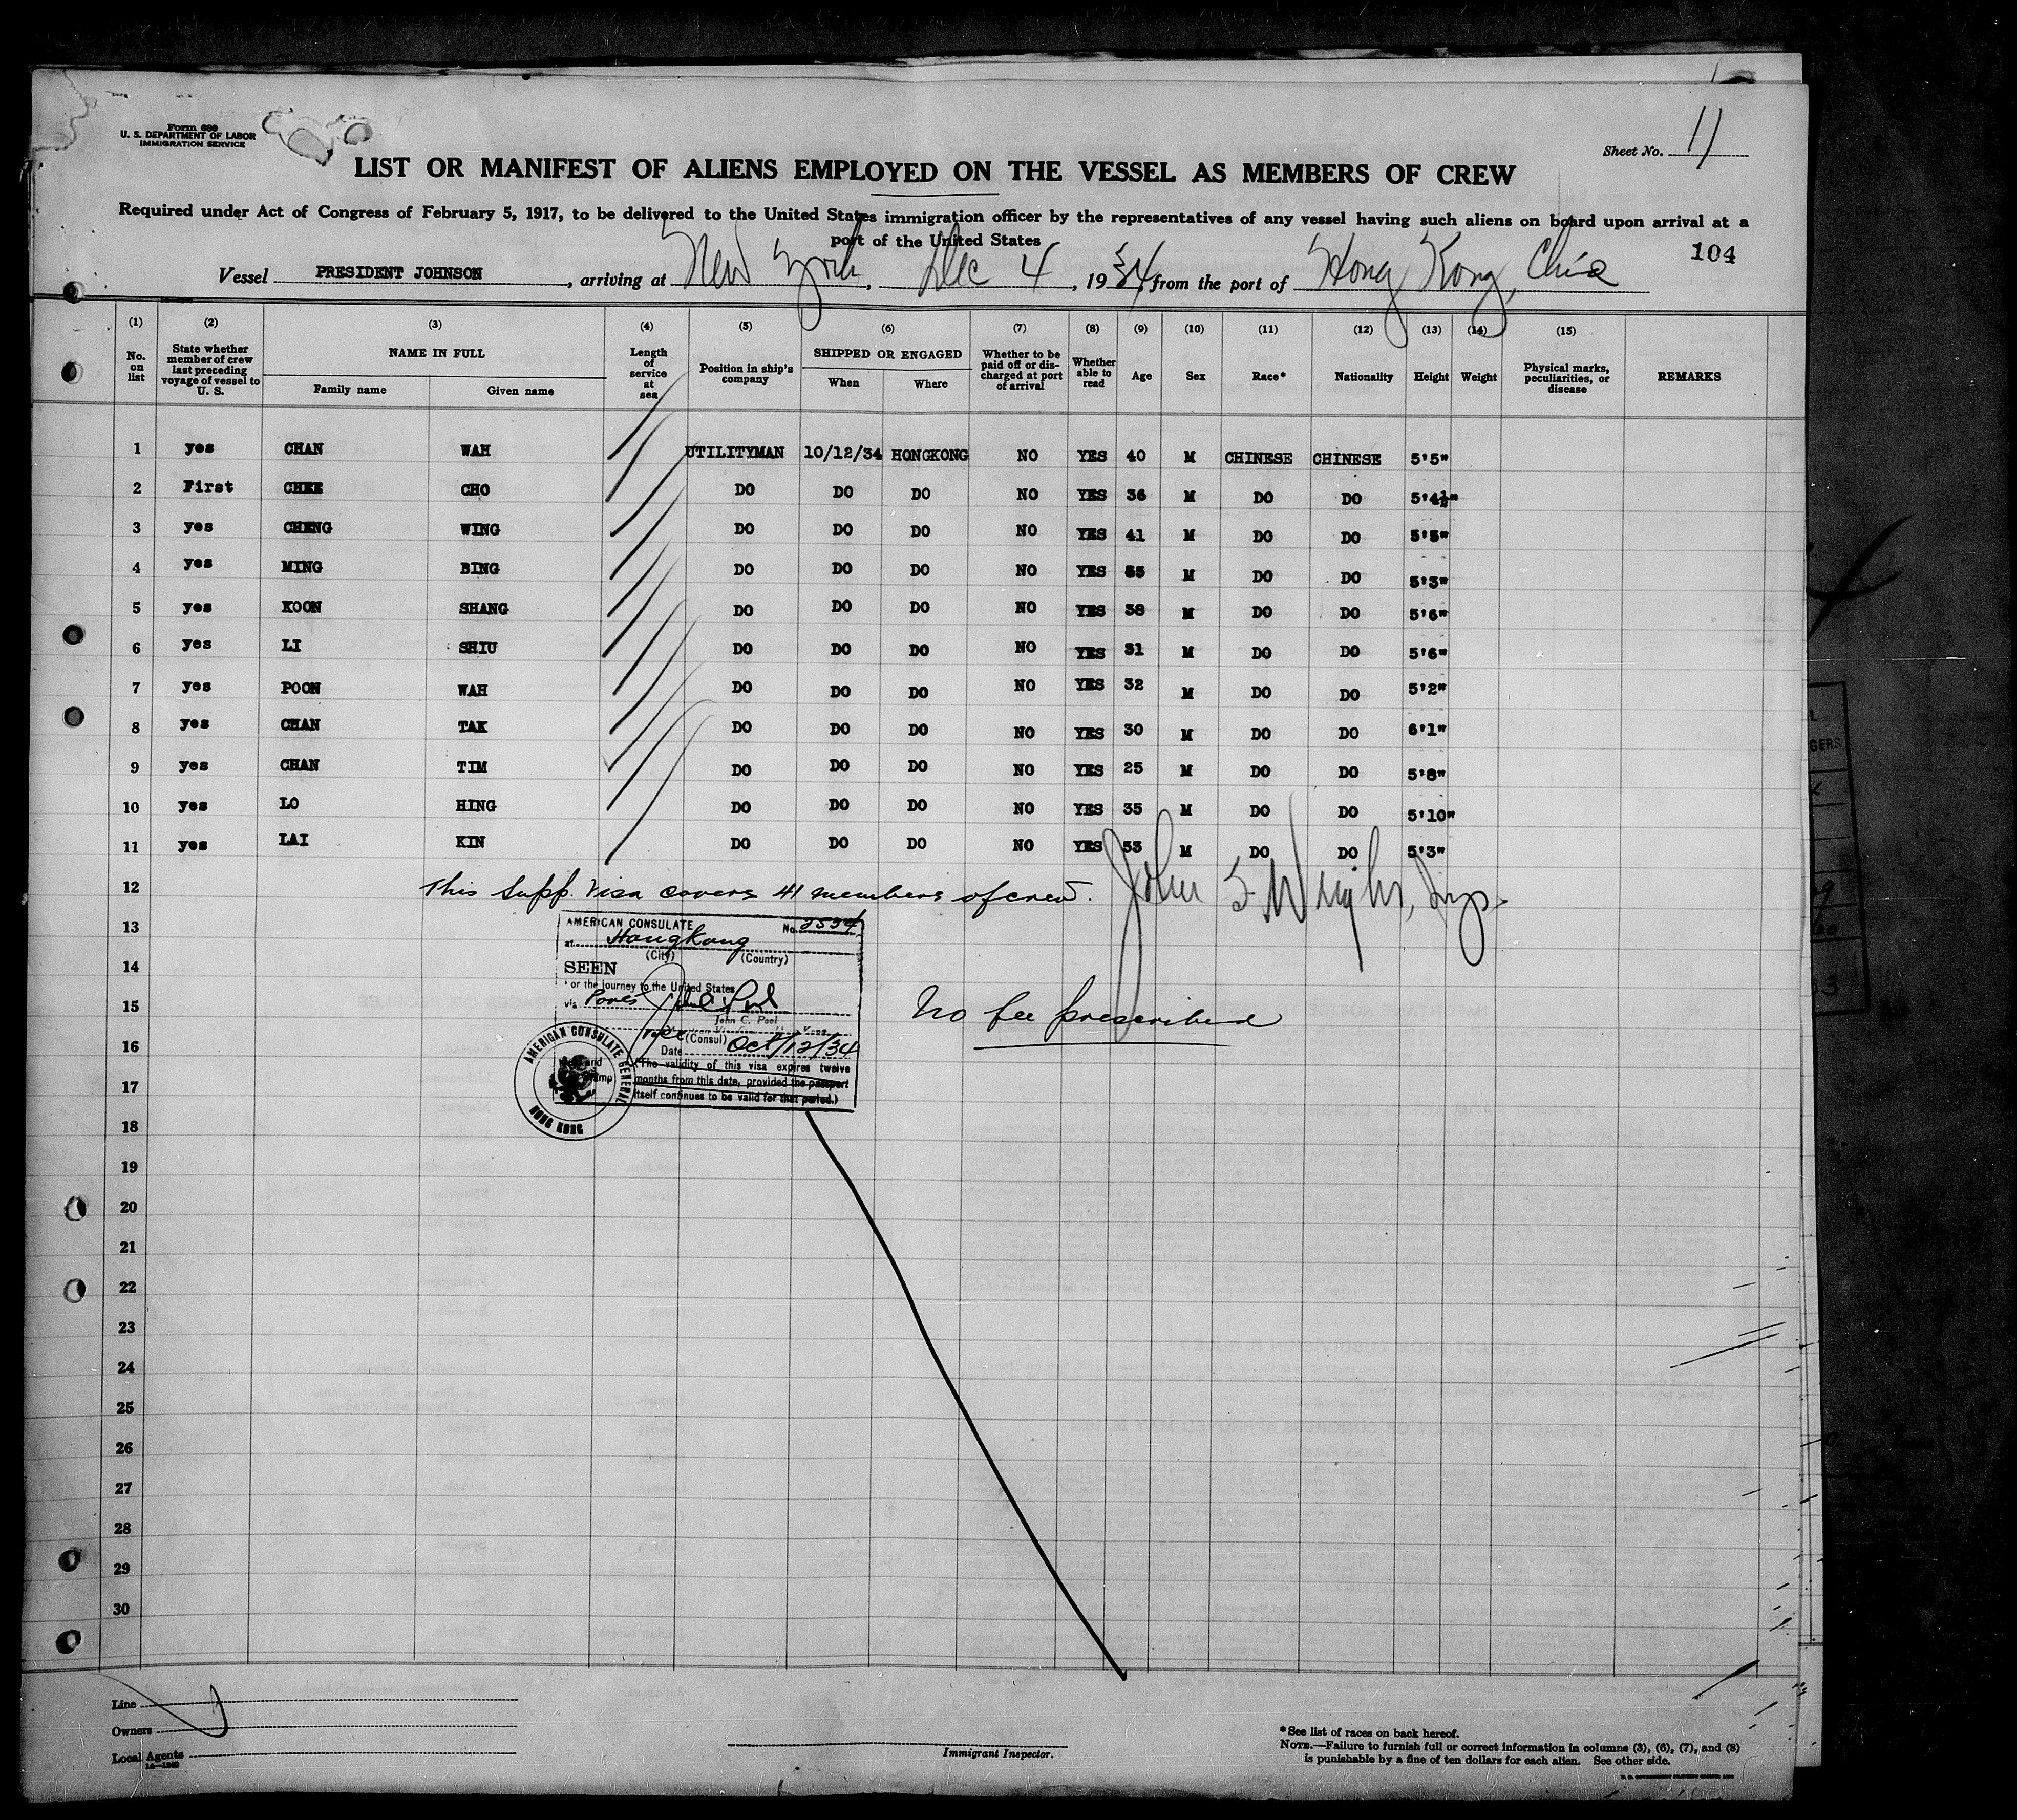 Form 689
U. S. DEPARTMENT OF LABOR
IMMIGRATION SERVICE
Sheet No. 11
LIST OR MANIFEST OF ALIENS EMPLOYED ON THE VESSEL AS MEMBERS OF CREW
Required under Act of Congress of February 5, 1917, to be delivered to the United States immigration officer by the representatives of any vessel having such aliens on board upon arrival at a
port of the United States
104
Vessel PRESIDENT JOHNSON, arriving at New York, Dec 4, 1934, from the port of Hong Kong, China
(1) (2) (3) (4) (5) (6) (7) (8) (9) (10) (11) (12) (13) (14) (15)
No. on list State whether member of crew last preceding voyage of vessel to U. S. NAME IN FULL Family name Given name Length of service at sea Position in ship's company SHIPPED OR ENGAGED When Where Whether to be paid off or discharged at port of arrival Whether able to read Age Sex Race* Nationality Height Weight Physical marks, peculiarities, or disease REMARKS
1 yes CHAN WAH UTILITYMAN 10/12/34 HONGKONG NO YES 40 M CHINESE CHINESE 5'5"
2 First CHEE CHO DO DO DO NO YES 36 M DO DO 5'4½"
3 yes CHENG WING DO DO DO NO YES 41 M DO DO 5'5"
4 yes MING BING DO DO DO NO YES M DO DO 5'3"
5 yes KOON SHANG DO DO DO NO YES 38 M DO DO 5'6"
6 yes LI SHIU DO DO DO NO YES 31 M DO DO 5'6"
7 yes POON WAH DO DO DO NO YES 32 M DO DO 5'2"
8 yes CHAN TAK DO DO DO NO YES 30 M DO DO 6'1"
9 yes CHAN TIM DO DO DO NO YES 25 M DO DO 5'8"
10 yes LO HING DO DO DO NO YES 35 M DO DO 5'10"
11 yes LAI KIN DO DO DO NO YES 53 M DO DO 5'3"
12 This Supp. Visa covers 41 members of crew. John S Wright, Insp.
13
14
15
16
17
18
19
20
21
22
23
24
25
26
27
28
29
30
AMERICAN CONSULATE No. 2534
at Hongkong
(City) (Country)
SEEN
for the journey to the United States
via
John C. Pool
(Consul)
Date Oct/12/34
(The validity of this visa expires twelve
months from this date, provided the passport
itself continues to be valid for that period.)
AMERICAN CONSULATE GENERAL
HONG KONG
No fee prescribed
Line
Owners
Local Agents
Immigrant Inspector.
*See list of races on back hereof.
NOTE.—Failure to furnish full or correct information in columns (3), (6), (7), and (8)
is punishable by a fine of ten dollars for each alien. See other side.